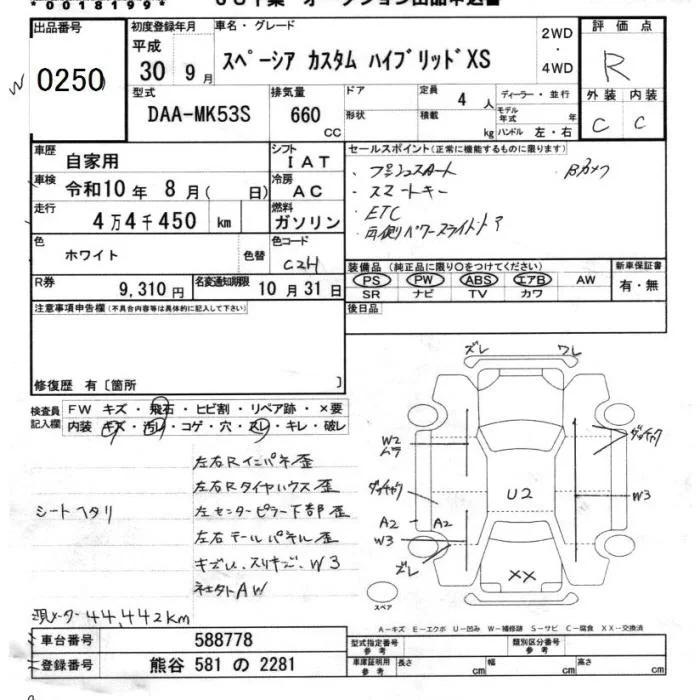 *0018199*
出品番号
0250
初度登録年月
平成
30 9月
車名・グレード
スペーシア カスタム ハイブリッドXS
2WD
・
4WD
評価点
R
外装 内装
C C
型式
DAA-MK53S
排気量
660
CC
ドア
形状
定員
4 人
積載
kg
ディーラー・並行
モデル年式 年
ハンドル 左・右
車歴
自家用
シフト
IAT
車検
令和10年 8月( 日)
冷房
AC
走行
4万4千450 km
燃料
ガソリン
色
ホワイト
色替
色コード
CZH
R券
9,310円
名変通知期限
10月31日
セールスポイント(正常に機能するものに限ります)
・プッシュスタート ・Bカメラ
・スマートキー
・ETC
・両側パワースライドドア
装備品(純正品に限り○をつけてください)
PS PW ABS エアB AW
SR ナビ TV カワ
新車保証書
有・無
後日品
注意事項申告欄(不具合内容等は具体的に記入して下さい)
修復歴 有〔箇所 〕
検査員
記入欄
FW キズ・飛石・ヒビ割・リペア跡・×要
内装 キズ・汚レ・コゲ・穴・スレ・キレ・破レ
左右Rインパネ歪
左右Rタイヤハウス歪
シートヘタリ
左センターピラー下部歪
左右テールパネル歪
キズ小、スリキズ、W3
ネセタトAW
現メーター44,442km
ズレ ワレ
W2
ムラ
ダッチャク
ダッチャク
U2
W3
A2 A2
W3
ズレ
XX
スペア
A-キズ E-エクボ U-凹み W-補修跡 S-サビ C-腐食 XX-交換済
車台番号
588778
登録番号
熊谷 581 の 2281
型式指定番号
参考
類別区分番号
参考
車庫証明用
参考
長さ cm
幅 cm
高さ cm